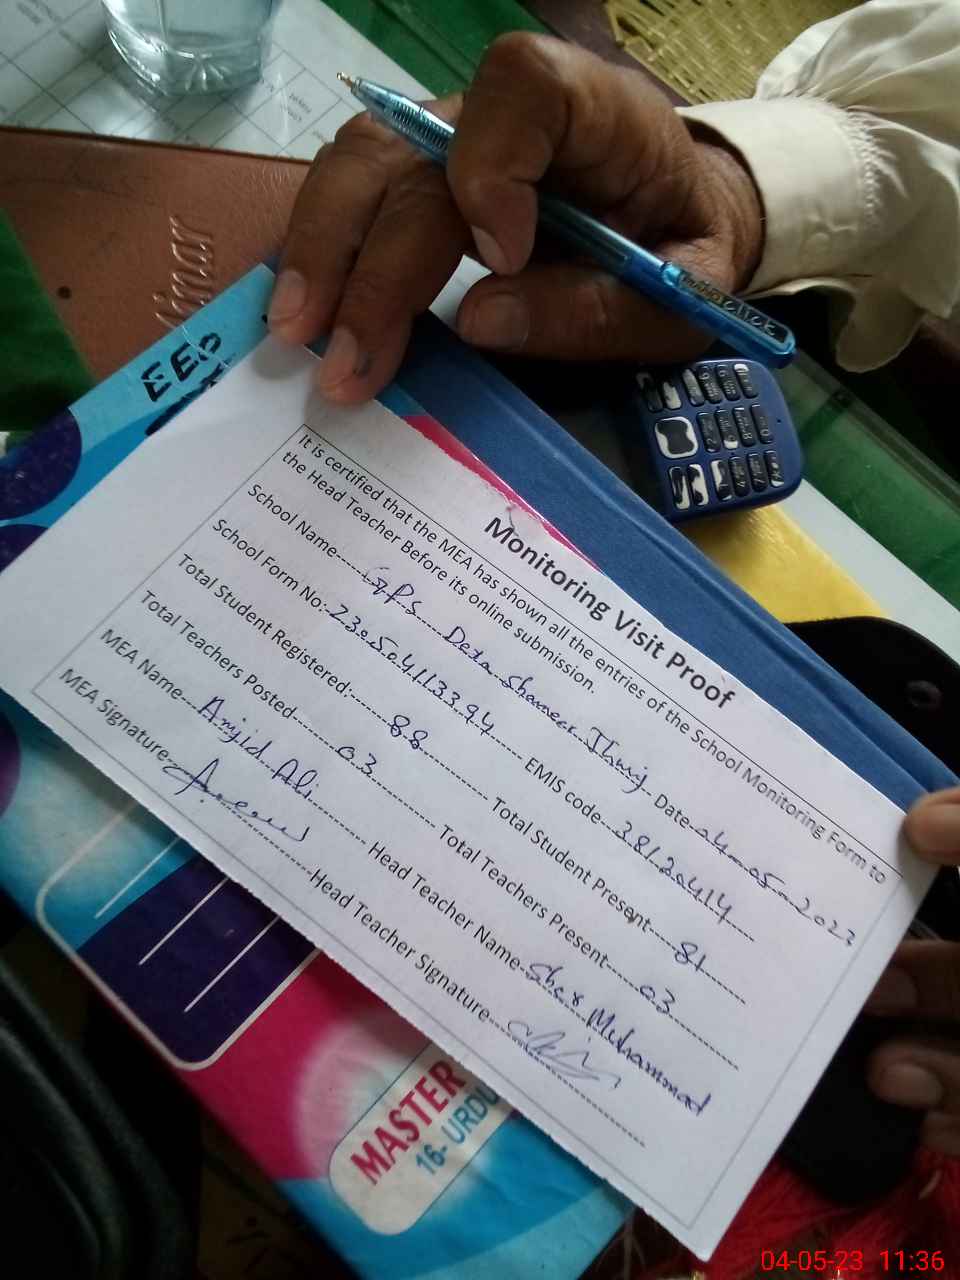 Monitoring Visit Proof
It is certified that the MEA has shown all the entries of the School Monitoring Form to
the Head Teacher Before its online submission.
School Name------GPS Deta Shameer Thmj---Date-04-05-2023
School Form No:-230504113394------EMIS code---38120414
Total Student Registered:------88------Total Student Present-----81
Total Teachers Posted------03------Total Teachers Present-----03
MEA Name---Amjid Ali------Head Teacher Name-Sher Muhammad
MEA Signature------Head Teacher Signature------
MASTER
16- URDU
click
04-05-23 11:36